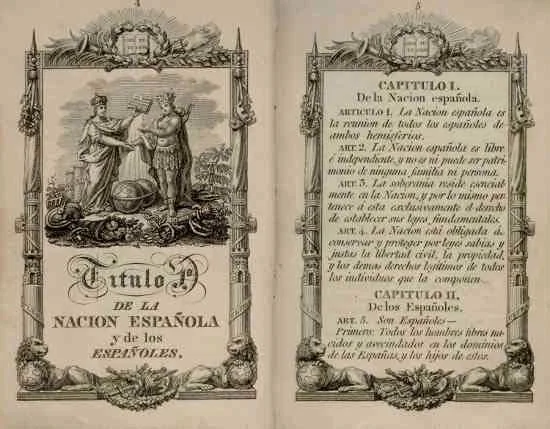 4
Titulo 1º
DE LA
NACION ESPAÑOLA
y de los
ESPAÑOLES.
5
CAPITULO I.
De la Nacion española.
ARTICULO 1. La Nacion española es
la reunion de todos los españoles de
ambos hemisferios.
ART. 2. La Nacion española es libre
é independiente, y no es ni puede ser patri
monio de ninguna familia ni persona.
ART. 3. La soberania reside esencial
mente en la Nacion, y por lo mismo per
tenece á esta exclusivamente el derecho
de establecer sus leyes fundamentales.
ART. 4. La Nacion está obligada á
conservar y proteger por leyes sabias y
justas la libertad civil, la propiedad,
y los demas derechos legitimos de todos
los individuos que la componen.
CAPITULO II.
De los Españoles.
ART. 5. Son Españoles—
Primero: Todos los hombres libres na
cidos y avecindados en los dominios
de las Españas, y los hijos de estos.